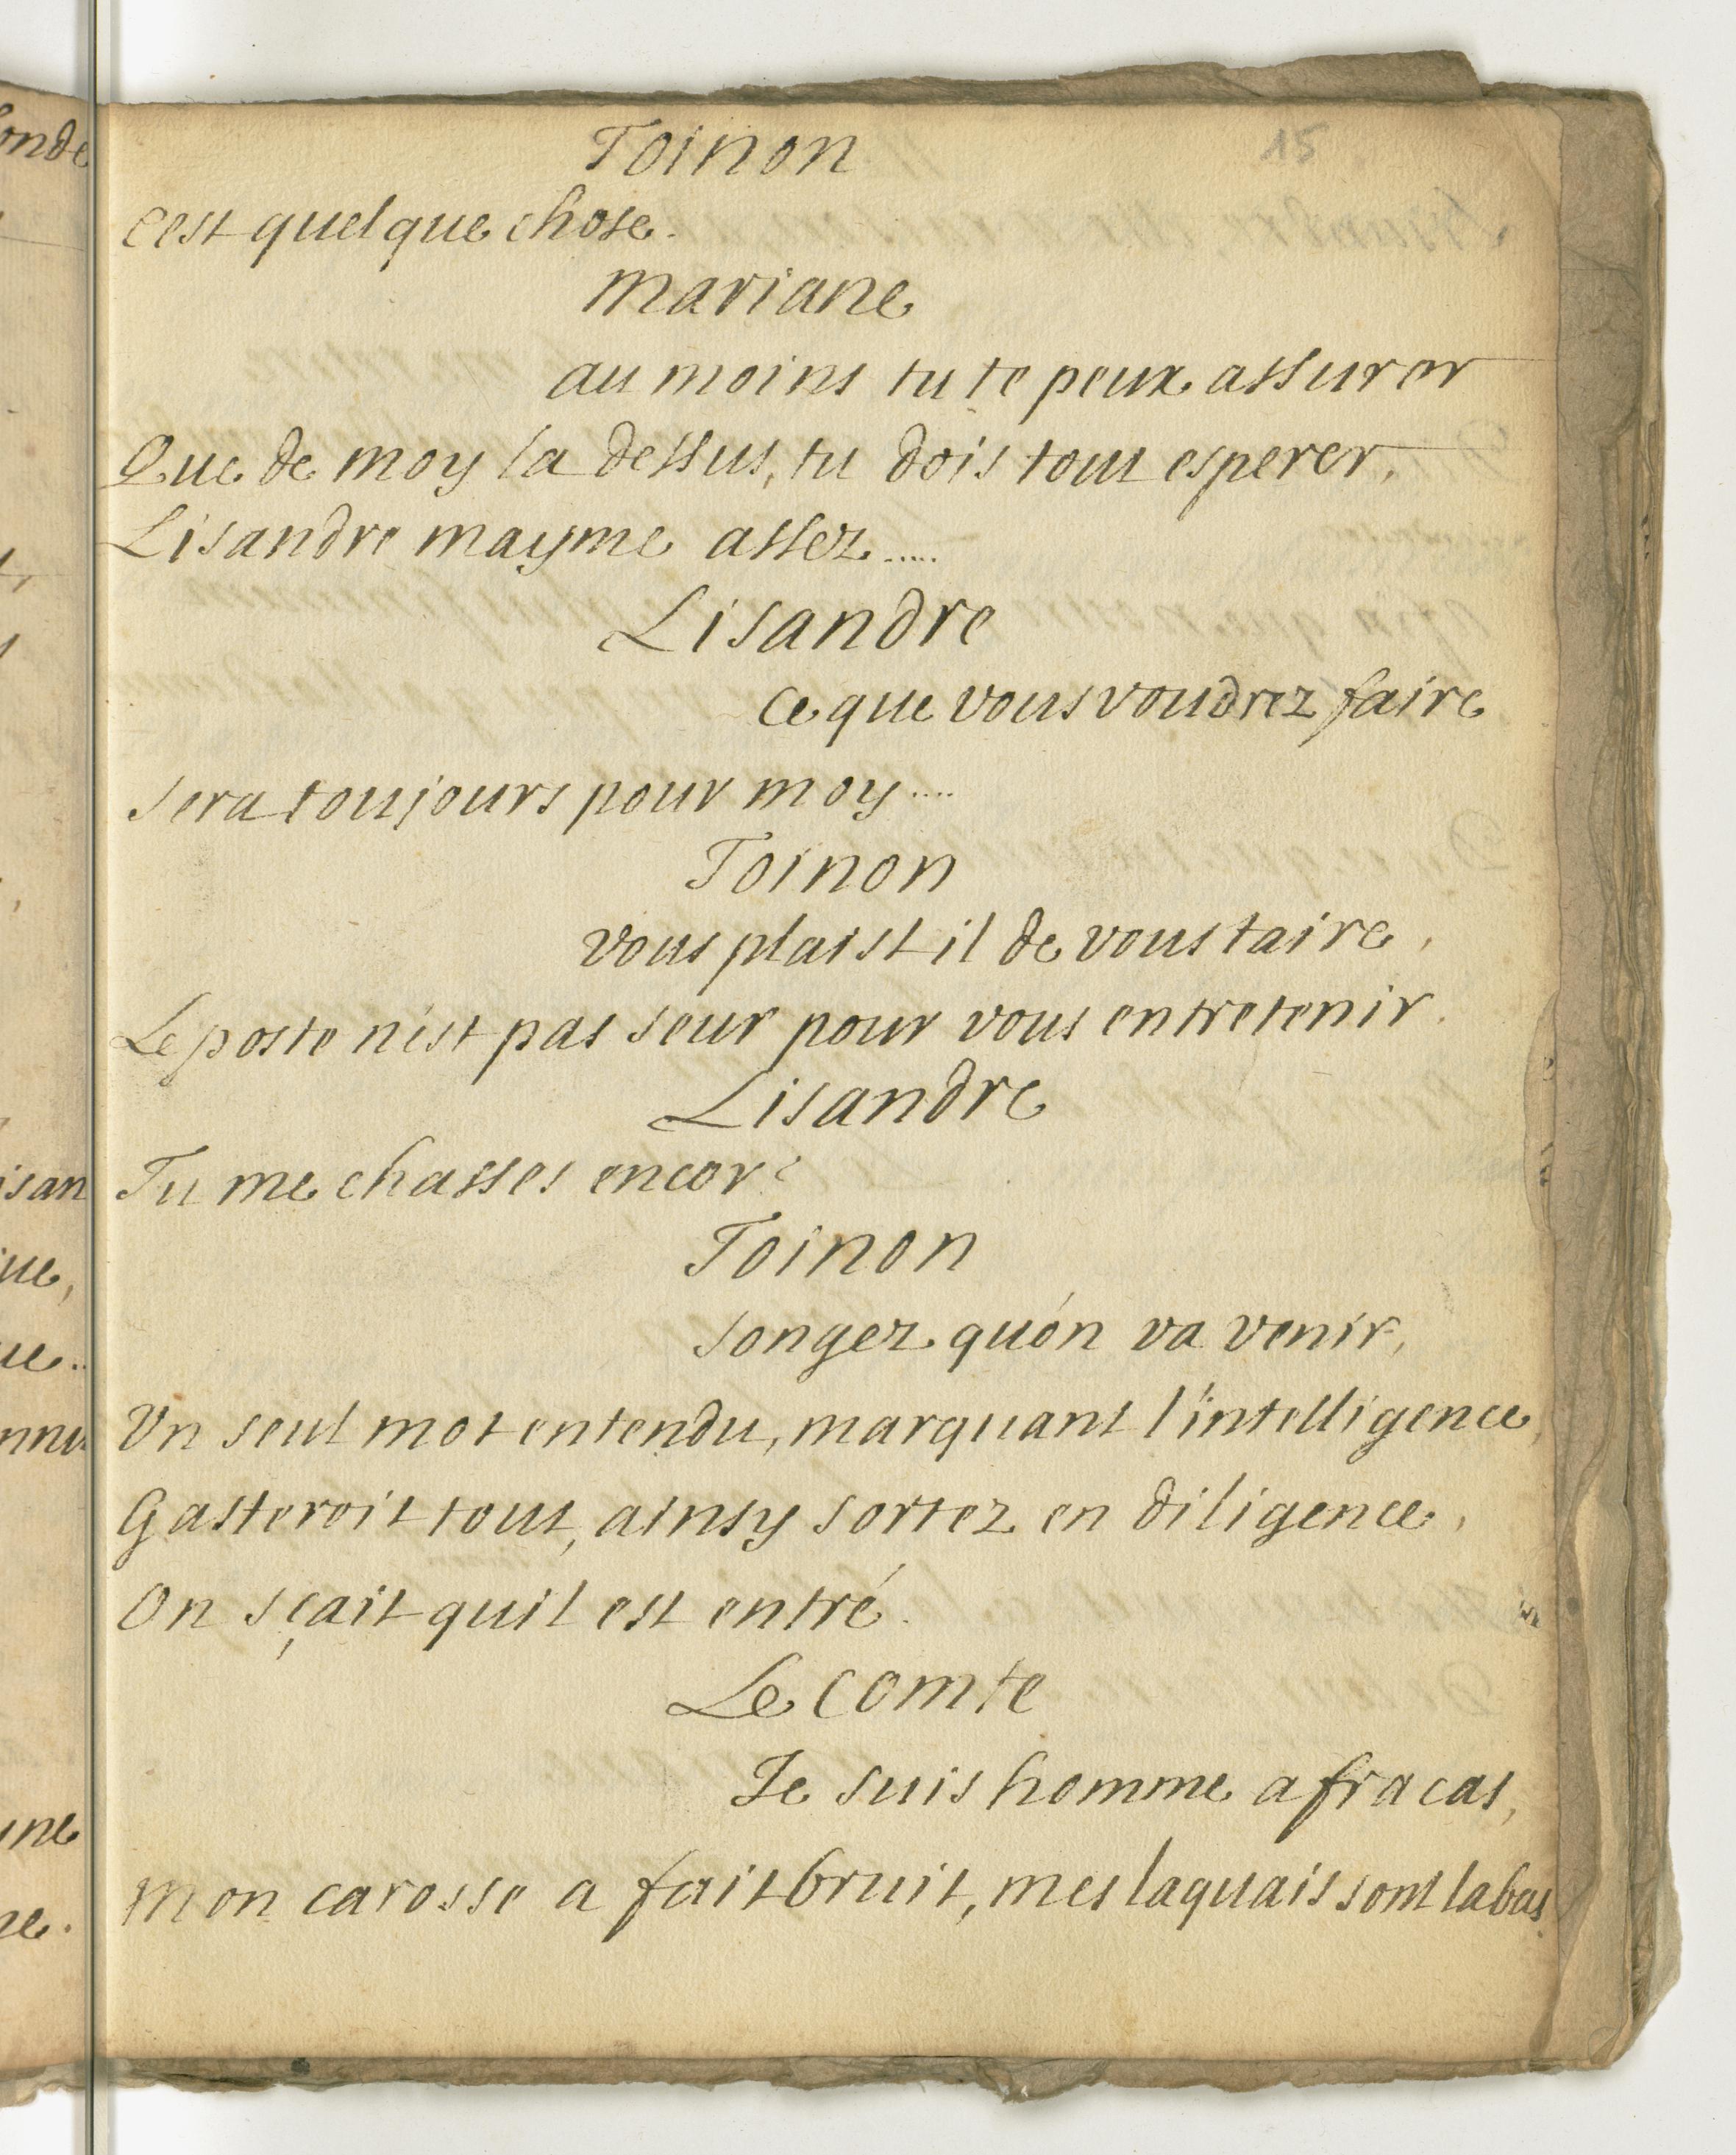 15
Toinon
cest quelque chose.
mariane
au moins tu te peux assurer
Que de moy la dessus, tu dois tout esperer,
Lisandre mayme assez .....
Lisandre
ce que vous voudrez faire
sera toujours pour moy ....
Toinon
vous plaist il de vous taire,
Le poste n'est pas seur pour vous entretenir.
Lisandre
Tu me chasses encor?
Toinon
songez qu'on va venir,
Un seul mot entendu, marquant l'intelligence,
Gasteroit tout, ainsy sortez en diligence,
On sçait quil est entré.
Le comte
Je suis homme a fracas,
mon carosse a fait bruit, mes laquais sont labas